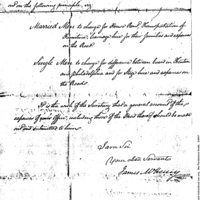 and on the following principle, viz
Married Men to charge for House Rent, Transportation of
Furniture, Carriage hire for their families and expenses
on the Road
Single Men to charge for difference between board in Trenton
and Philadelphia and for Stage hire and expenses on
the Road
It is the wish of the Secretary that a general account of the
expenses of your office, including those of the Head thereof should be made
out and submitted to him
I am Sir
Your Obt Servant
James McHenry